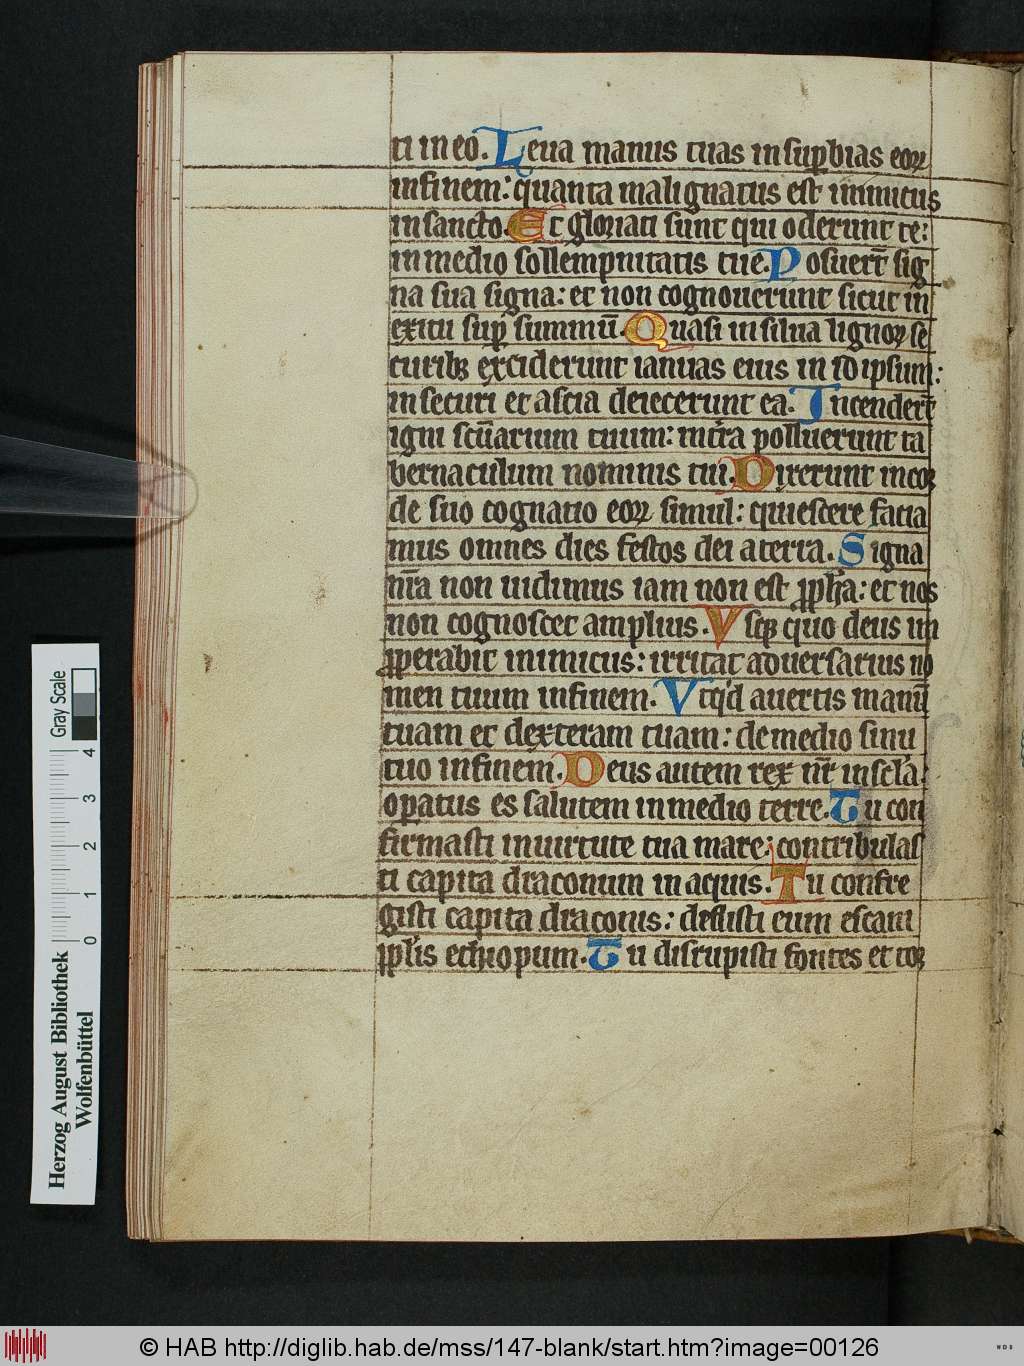 ti in eo. Leua manus tuas in suꝑbias eoꝝ
in finem: quanta malignatus est inimicus
in sancto. Et gloriati sunt qui oderunt te:
in medio sollempnitatis tue. Posuer̄t sig
na sua signa: et non cognouerunt sicut in
exitu suꝑ summū. Quasi in silua lignoꝝ se
curibꝫ exciderunt ianuas eius in id ipsum:
in securi et ascia deiecerunt ea. Incender̄t
igni scūarium tuum: in tr̄a polluerunt ta
bernaculum nominis tui. Dixerunt in coꝛ
de suo cognatio eoꝝ simul: quiescere facia
mus omnes dies festos dei a terra. Signa
nr̄a non uidimus iam non est ꝓph̄a: et nos
non cognoscet amplius. Vsqꝫ quo deus im
ꝓperabit inimicus: irritat aduersarius no
men tuum in finem. Vt qͥd auertis manū
tuam et dexteram tuam: de medio sinu
tuo in finem. Deus autem rex nr̄ in scl̓a:
oꝑatus es salutem in medio terre. Tu con
firmasti in uirtute tua mare: contribulas
ti capita draconum in aquis. Tu confre
gisti capita draconis: dedisti eum escam
ppl̓is ethiopum. Tu dirupisti fontes et toꝛ
Herzog August Bibliothek
Wolfenbüttel
0 1 2 3 4
Gray Scale
© HAB http://diglib.hab.de/mss/147-blank/start.htm?image=00126